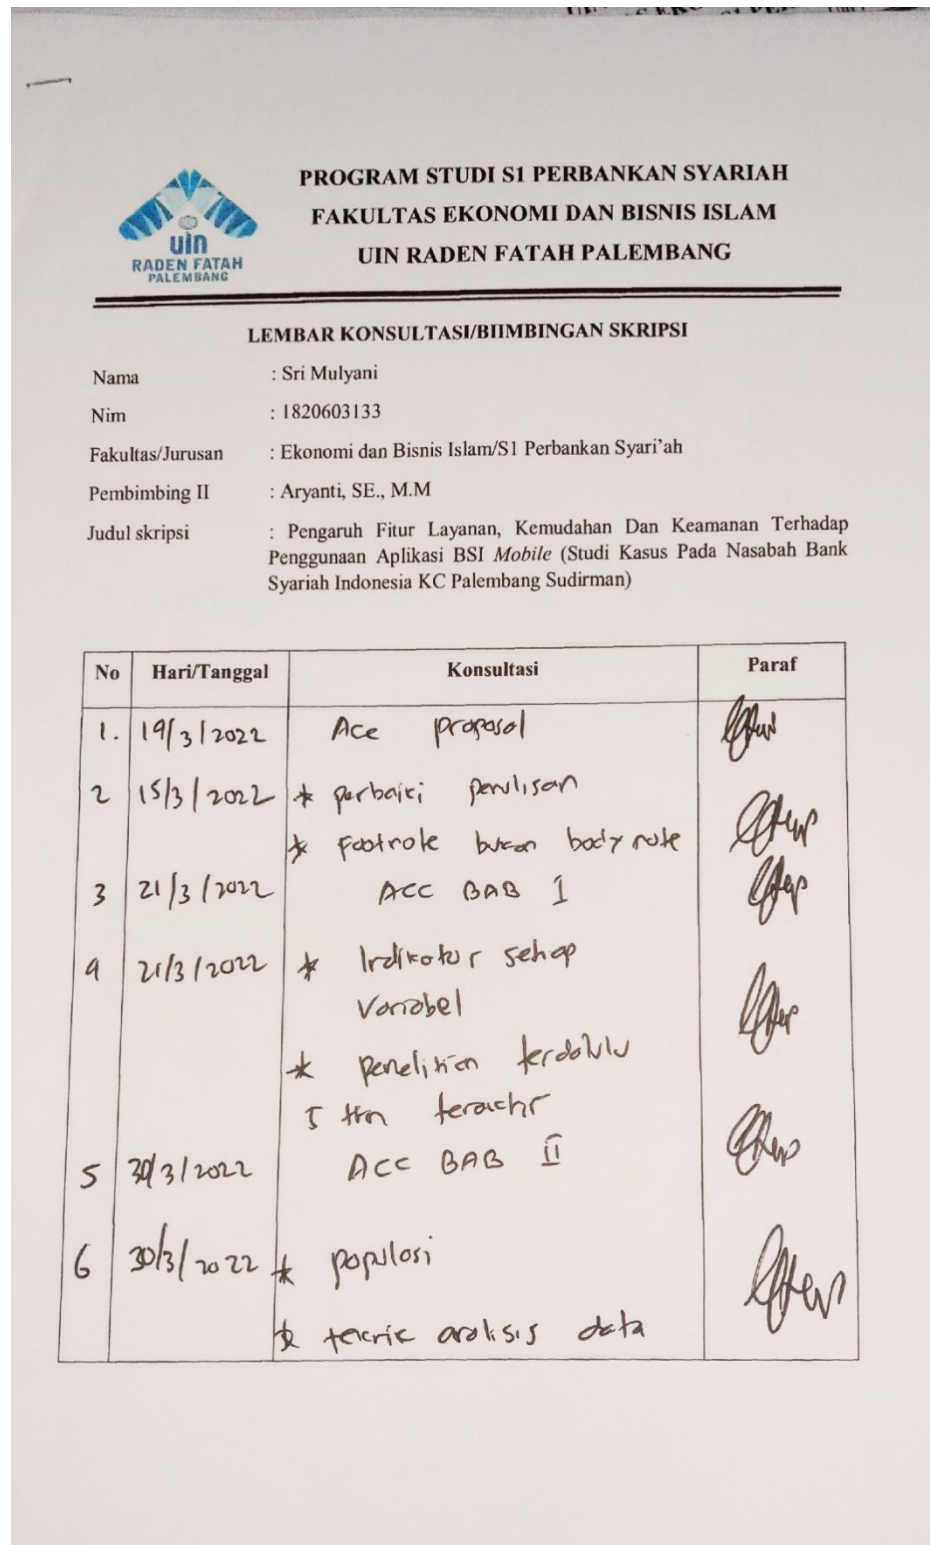 PROGRAM STUDI S1 PERBANKAN SYARIAH
FAKULTAS EKONOMI DAN BISNIS ISLAM
UIN RADEN FATAH PALEMBANG
uin
RADEN FATAH
PALEMBANG
LEMBAR KONSULTASI/BIIMBINGAN SKRIPSI
Nama : Sri Mulyani
Nim : 1820603133
Fakultas/Jurusan : Ekonomi dan Bisnis Islam/S1 Perbankan Syari'ah
Pembimbing II : Aryanti, SE., M.M
Judul skripsi : Pengaruh Fitur Layanan, Kemudahan Dan Keamanan Terhadap
Penggunaan Aplikasi BSI Mobile (Studi Kasus Pada Nasabah Bank
Syariah Indonesia KC Palembang Sudirman)
No Hari/Tanggal Konsultasi Paraf
1. 19/3/2022 Acc proposal
2 15/3/2022 * perbaiki penulisan
* Footnote bukan body note
3 21/3/2022 ACC BAB I
4 21/3/2022 * Indikator setiap
Variabel
* penelitian terdahulu
5 thn terachr
5 30/3/2022 ACC BAB II
6 30/3/2022 * populasi
* teknik analisis data